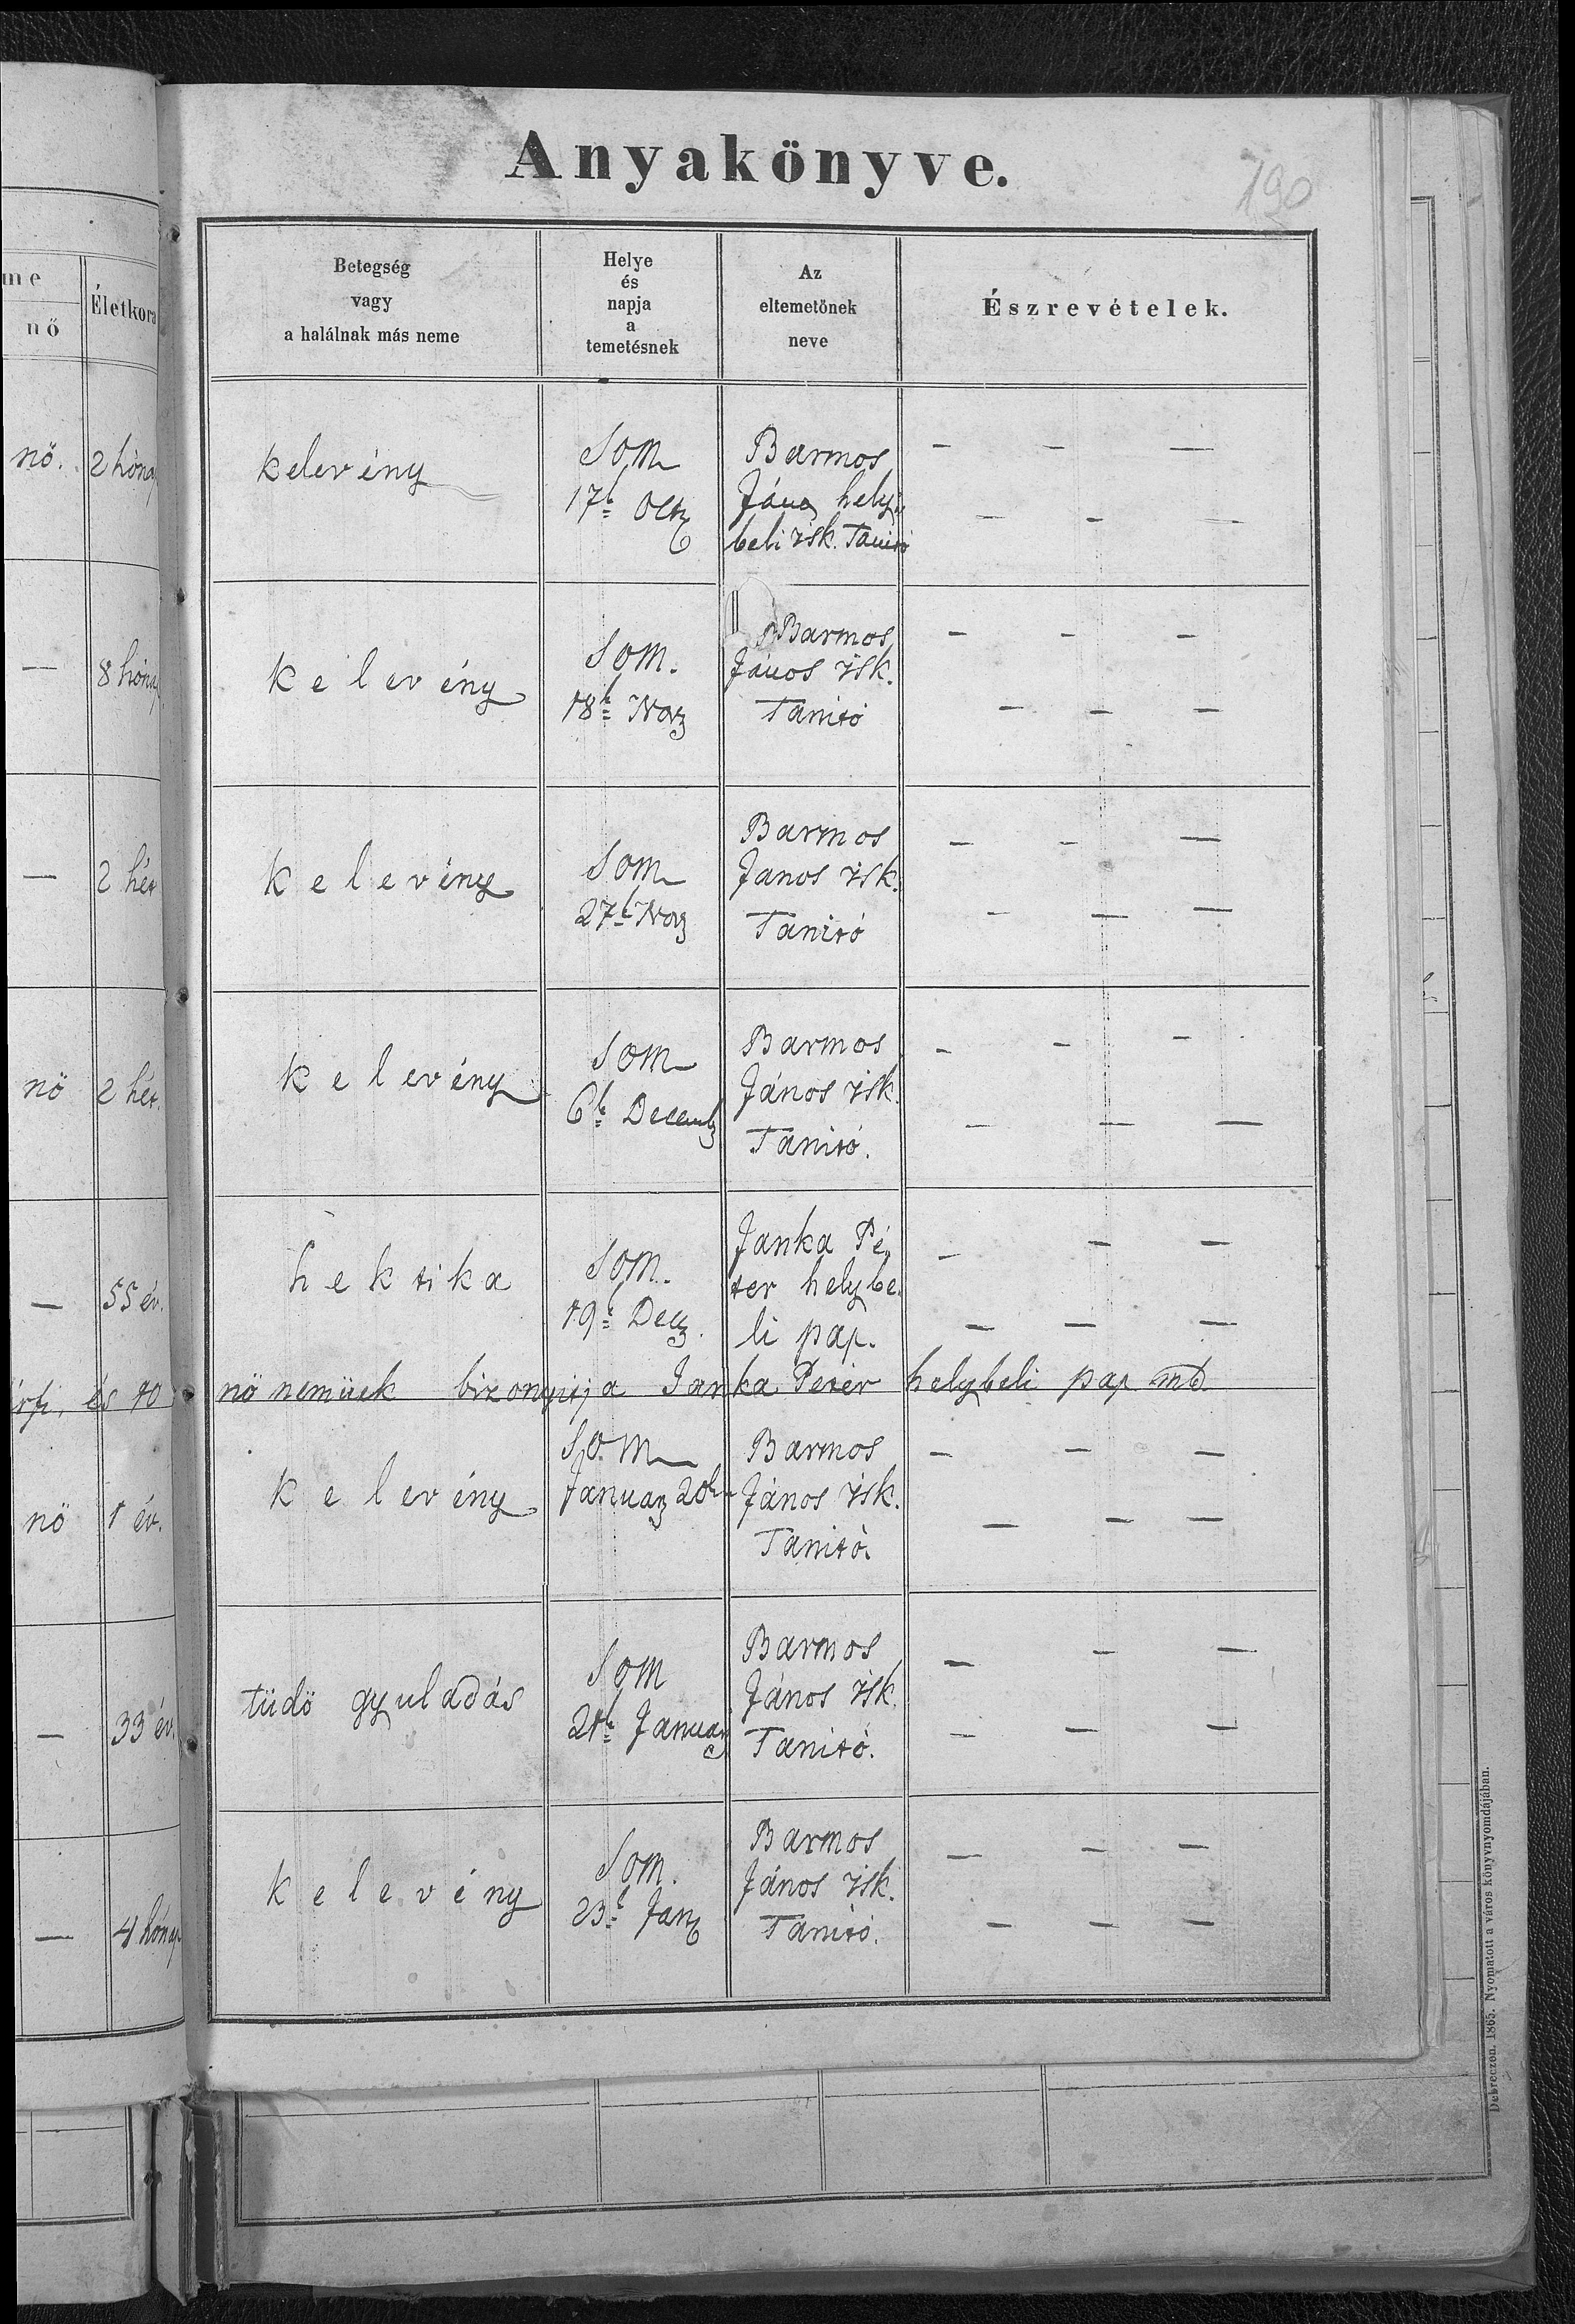 Anyakönyve.
190
me
nő
Életkora
Betegség
vagy
a halálnak más neme
Helye
és
napja
a
temetésnek
Az
eltemetőnek
neve
Észrevételek.
nő. 2 hónap
kelevény
Som
17k Octb
Barmos
János hely
beli isk. Tanitó
— — —
— — —
— 8 hónap
kelevény
Som.
18k Nov
Barmos
János isk.
Tanitó
— — —
— — —
— 2 hét
kelevény
Som
27k Nov
Barmos
Janos isk.
Tanitó
— — —
— — —
nö 2 hét.
kelevény
Som
6k Decemb
Barmos
János isk.
Tanitó.
— — —
— — —
— 55 év.
hektika
Som.
19k Dec.
Janka Pé,
ter helybe,
li pap.
— — —
— — —
érfi, és 10 nö nemüek bizonyitja Janka Péter helybeli pap mk.
nö 1 év.
kelevény
Som
Januar 20k
Barmos
János isk.
Tanitó.
— — —
— — —
— 33 év.
tüdö gyuladás
Som
21k Januar
Barmos
János isk.
Tanitó.
— — —
— — —
— 4 hónap
kelevény
Som.
23k Jan
Barmos
János isk.
Tanitó.
— — —
— — —
Debreczen. 1865. Nyomatott a város könyvnyomdájában.